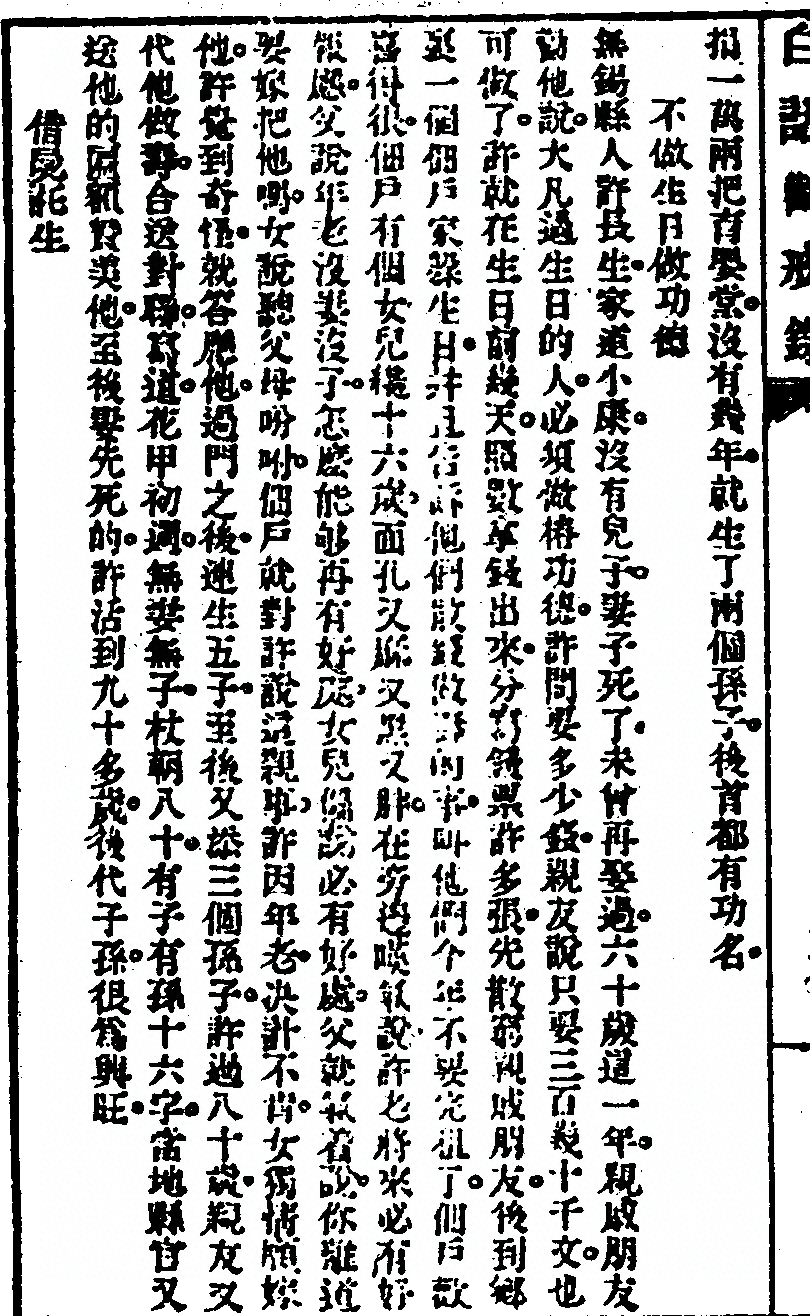 白話勸戒錄
捐一萬兩把育嬰堂沒有幾年就生了兩個孫子後首都有功名
不做生日做功德
無錫縣人許長生家道小康沒有兒子妻子死了未曾再娶過六十歲這一年親戚朋友
勸他說大凡過生日的人必須做樁功德許問要多少錢親友說只要三百幾十千文也
可做了許就在生日前幾天照數拿錢出來分寫錢票許多張先散窮親戚朋友後到鄉
裏一個個佃戶家躲生日并且告訴他們散錢做壽的事叫他們今年不要完租了佃戶歡
喜得很佃戶有個女兒纔十六歲面孔又麻又黑又胖在旁邊嘆氣說許老將來必有好
報應父說年老沒妻沒子怎麼能够再有好處女兒偏說必有好處父就氣着說你難道
要嫁把他嗎女說聽父母吩咐佃戶就對許說這親事許因年老決計不肯女獨情願嫁
他許覺到奇怪就答應他過門之後連生五子至後又添三個孫子許過八十歲親友又
代他做壽合送對聯寫道花甲初週無妻無子杖朝八十有子有孫十六字當地縣官又
送他的匾額贊美他至後娶先死的許活到九十多歲後代子孫很爲興旺
借臾託生